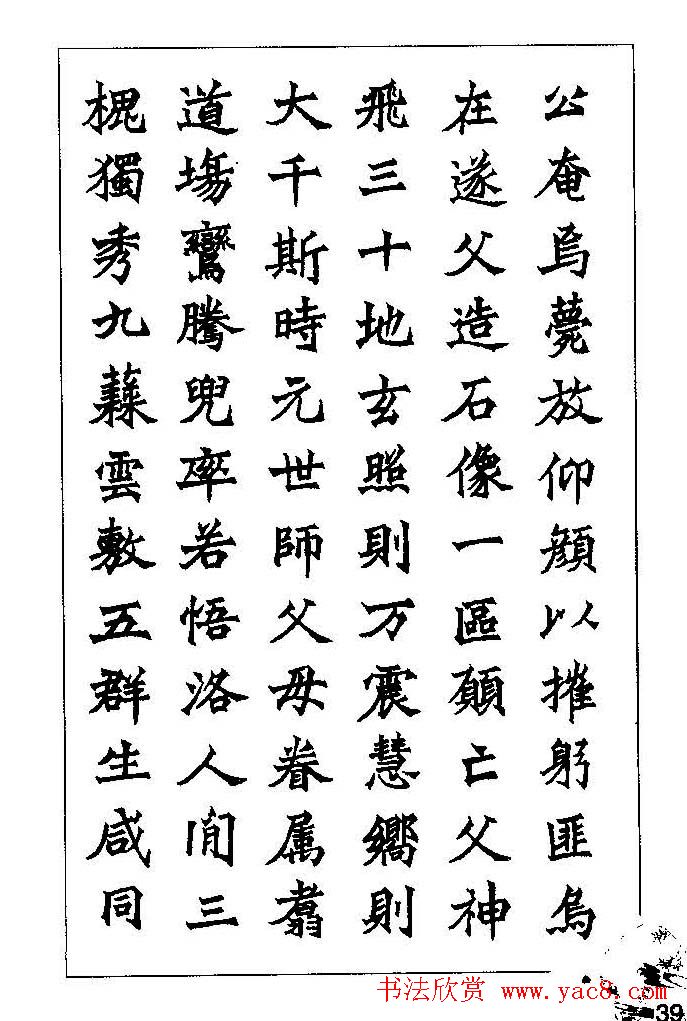 公奄焉薨放仰顏以摧躬匪烏
在遂父造石像一區願亡父神
飛三十地玄照則万震慧嚮則
大千斯時元世師父母眷属翥
道塲鸞騰兜率若悟洛人間三
槐獨秀九蕀雲敷五群生咸同
书法欣赏 www.yac8.com
39